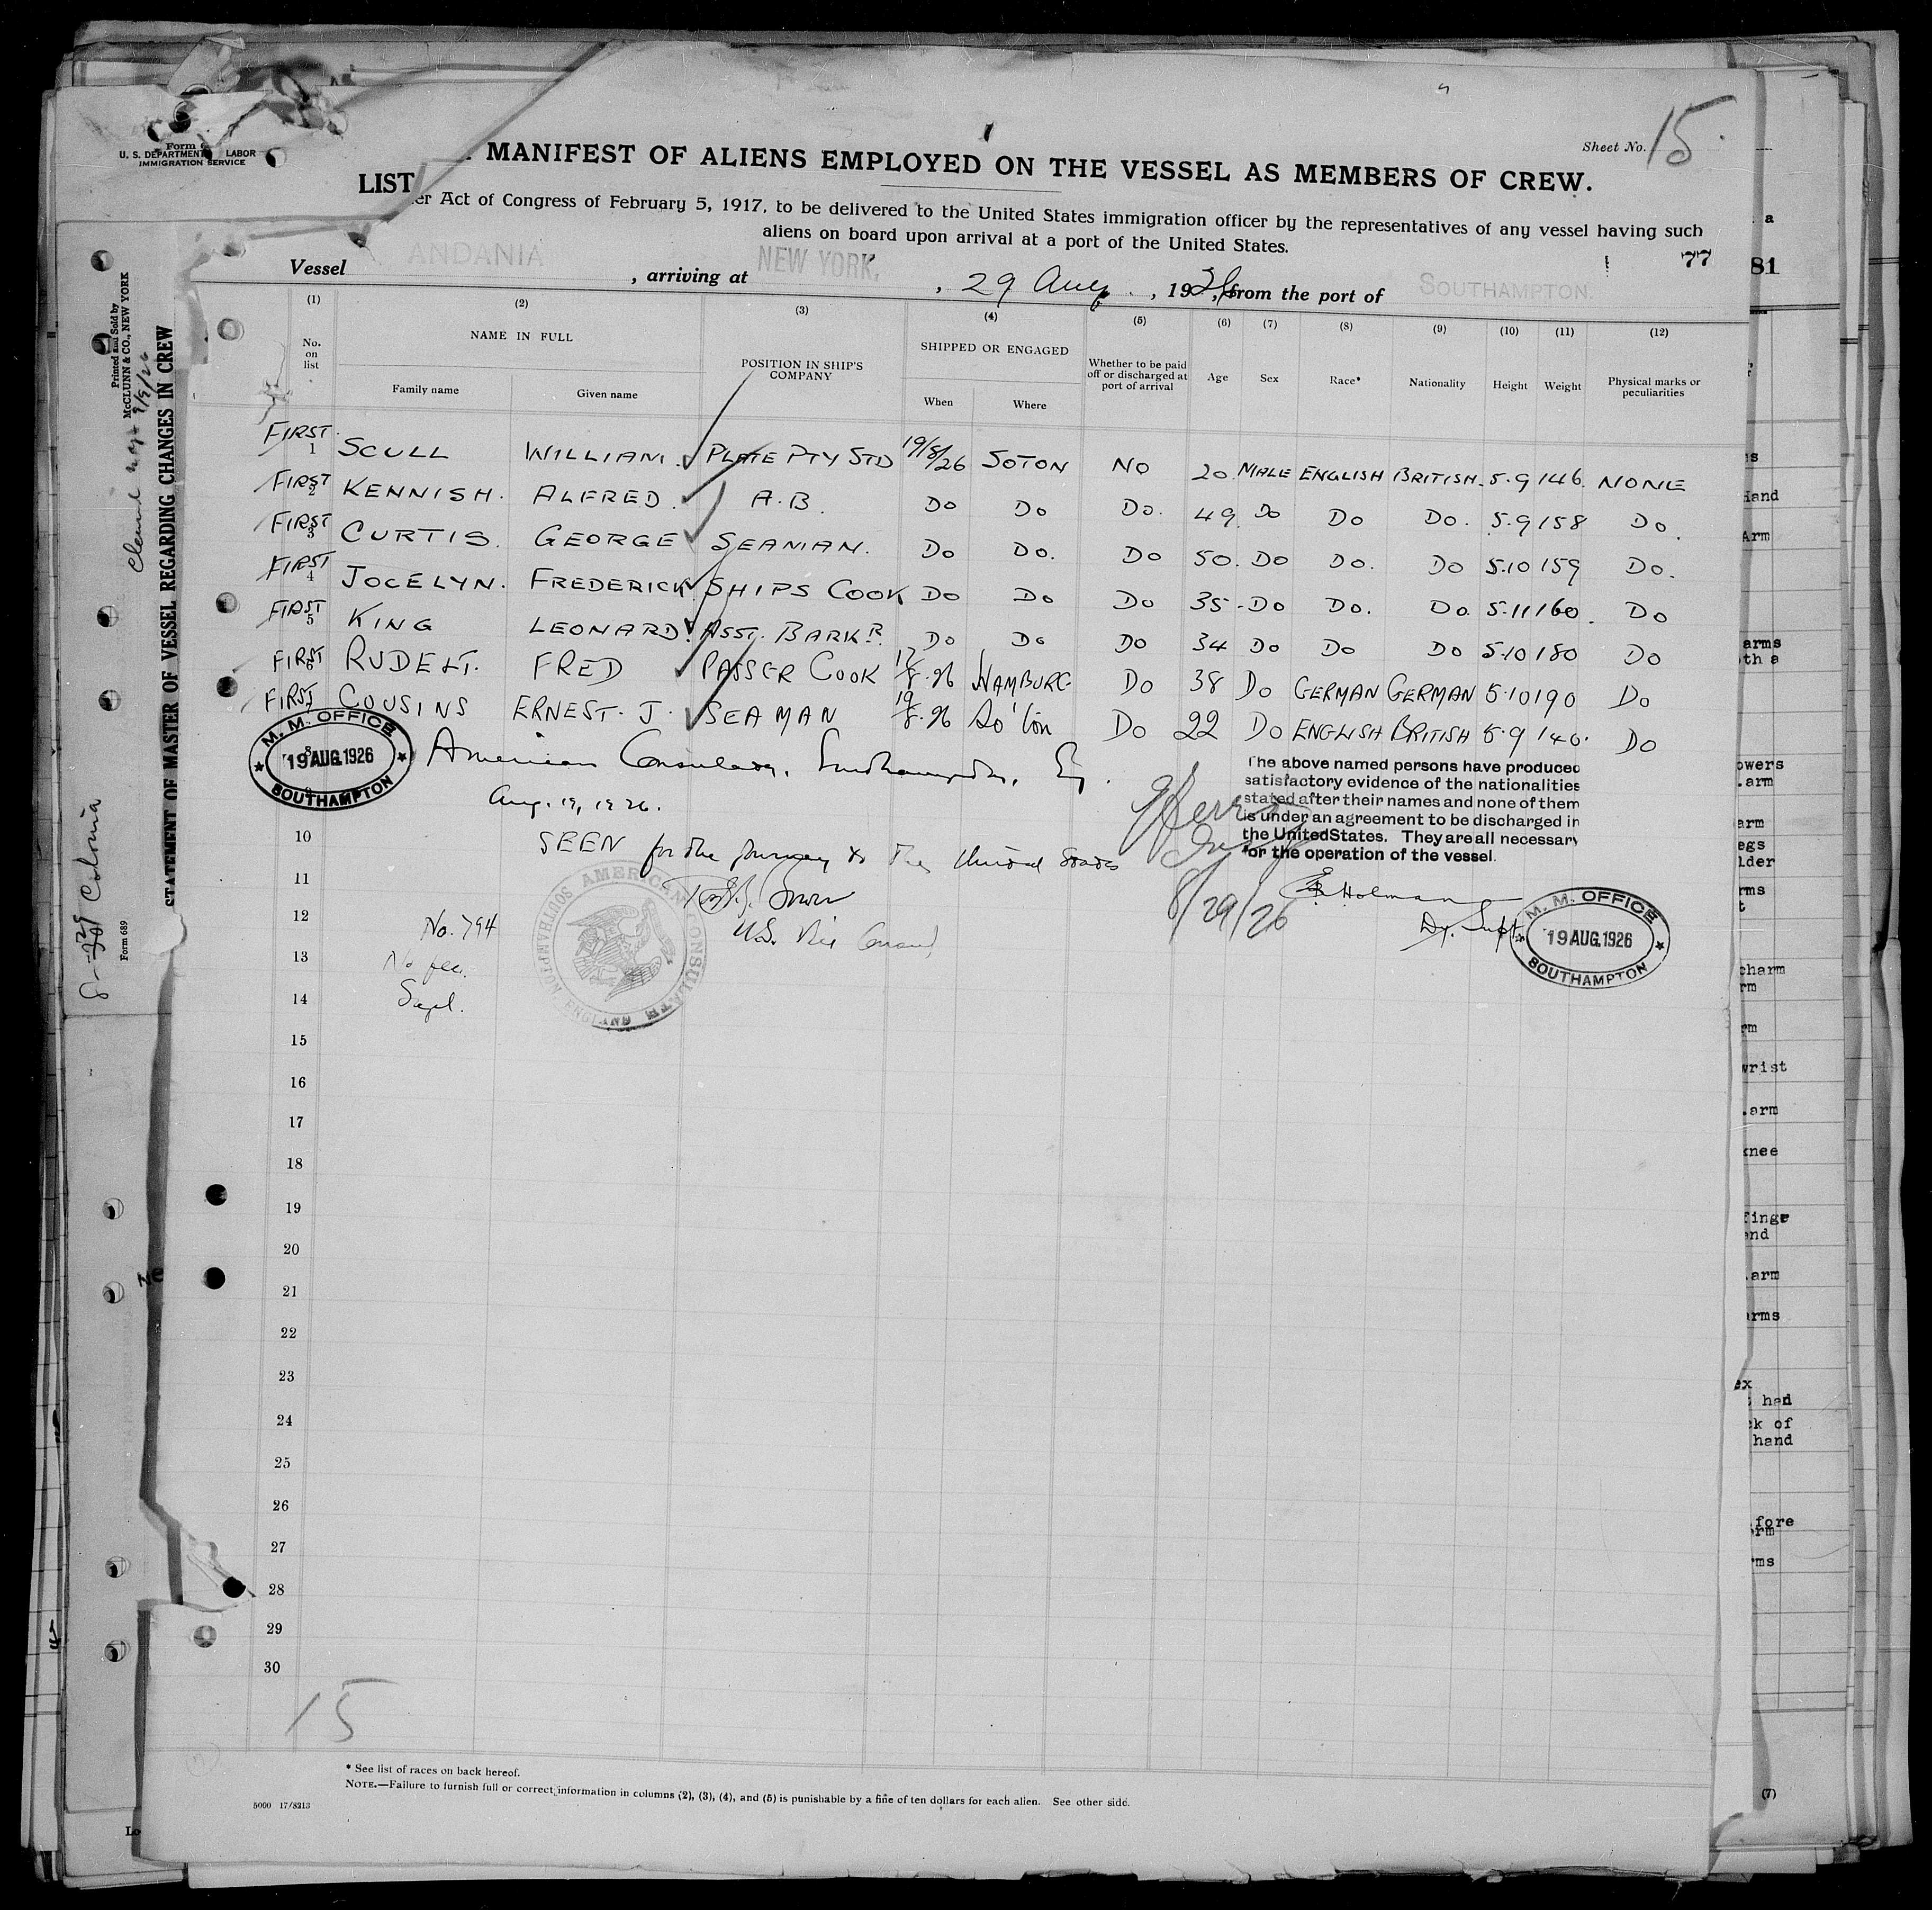 Form
U. S. DEPARTMENT LABOR
IMMIGRATION SERVICE
Sheet No. 15
LIST MANIFEST OF ALIENS EMPLOYED ON THE VESSEL AS MEMBERS OF CREW.
Act of Congress of February 5, 1917, to be delivered to the United States immigration officer by the representatives of any vessel having such
aliens on board upon arrival at a port of the United States.
77
81
Vessel ANDANIA, arriving at NEW YORK, 29 Aug, 1926, from the port of SOUTHAMPTON.
(1) (2) (3) (4) (5) (6) (7) (8) (9) (10) (11) (12)
No. on list NAME IN FULL POSITION IN SHIP'S COMPANY SHIPPED OR ENGAGED Whether to be paid off or discharged at port of arrival Age Sex Race* Nationality Height Weight Physical marks or peculiarities
Family name Given name When Where
FIRST 1 SCULL WILLIAM. PLATE PTY STD 19/8/26 SOTON NO 20 MALE ENGLISH BRITISH 5.9 146 NONE
FIRST 2 KENNISH. ALFRED. A.B. DO DO DO. 49 DO DO DO. 5.9 158 DO.
FIRST 3 CURTIS. GEORGE SEAMAN. DO DO. DO 50. DO DO. DO 5.10 159 DO.
FIRST 4 JOCELYN. FREDERICK SHIPS COOK DO DO DO 35 DO DO. DO. 5.11 160. DO
FIRST 5 KING LEONARD. ASST. BARKR DO DO DO 34 DO DO DO 5.10 180 DO
FIRST 6 RUDELT. FRED PASSGR COOK 17/8.26 HAMBURG DO 38 DO GERMAN GERMAN 5.10 190 DO
FIRST 7 COUSINS ERNEST. J. SEAMAN 19/8.26 So'ton DO 22 DO ENGLISH BRITISH 5.9 140. DO
M. M. OFFICE
19 AUG. 1926
SOUTHAMPTON
American Consulate, Southampton, Eng.
Aug. 19, 1926.
SEEN for the journey to the United States
U.S. Vice Consul
No. 794
No fee.
AMERICAN CONSULATE
SOUTHAMPTON, ENGLAND
The above named persons have produced
satisfactory evidence of the nationalities
stated after their names and none of them
is under an agreement to be discharged in
the United States. They are all necessary
for the operation of the vessel.
8/29/26
Holman
Dy. Supt
M. M. OFFICE
19 AUG. 1926
SOUTHAMPTON
10
11
12
13
14
15
16
17
18
19
20
21
22
23
24
25
26
27
28
29
30
15
* See list of races on back hereof.
NOTE.—Failure to furnish full or correct information in columns (2), (3), (4), and (5) is punishable by a fine of ten dollars for each alien. See other side.
5000 17/8213
STATEMENT OF MASTER OF VESSEL REGARDING CHANGES IN CREW
Printed and Sold by
McCLUNN & CO., NEW YORK
Form 689
Colonia
Hand
Arm
arms
arm
arm
egs
arms
wrist
arm
knee
arm
arms
had
hand
(7)